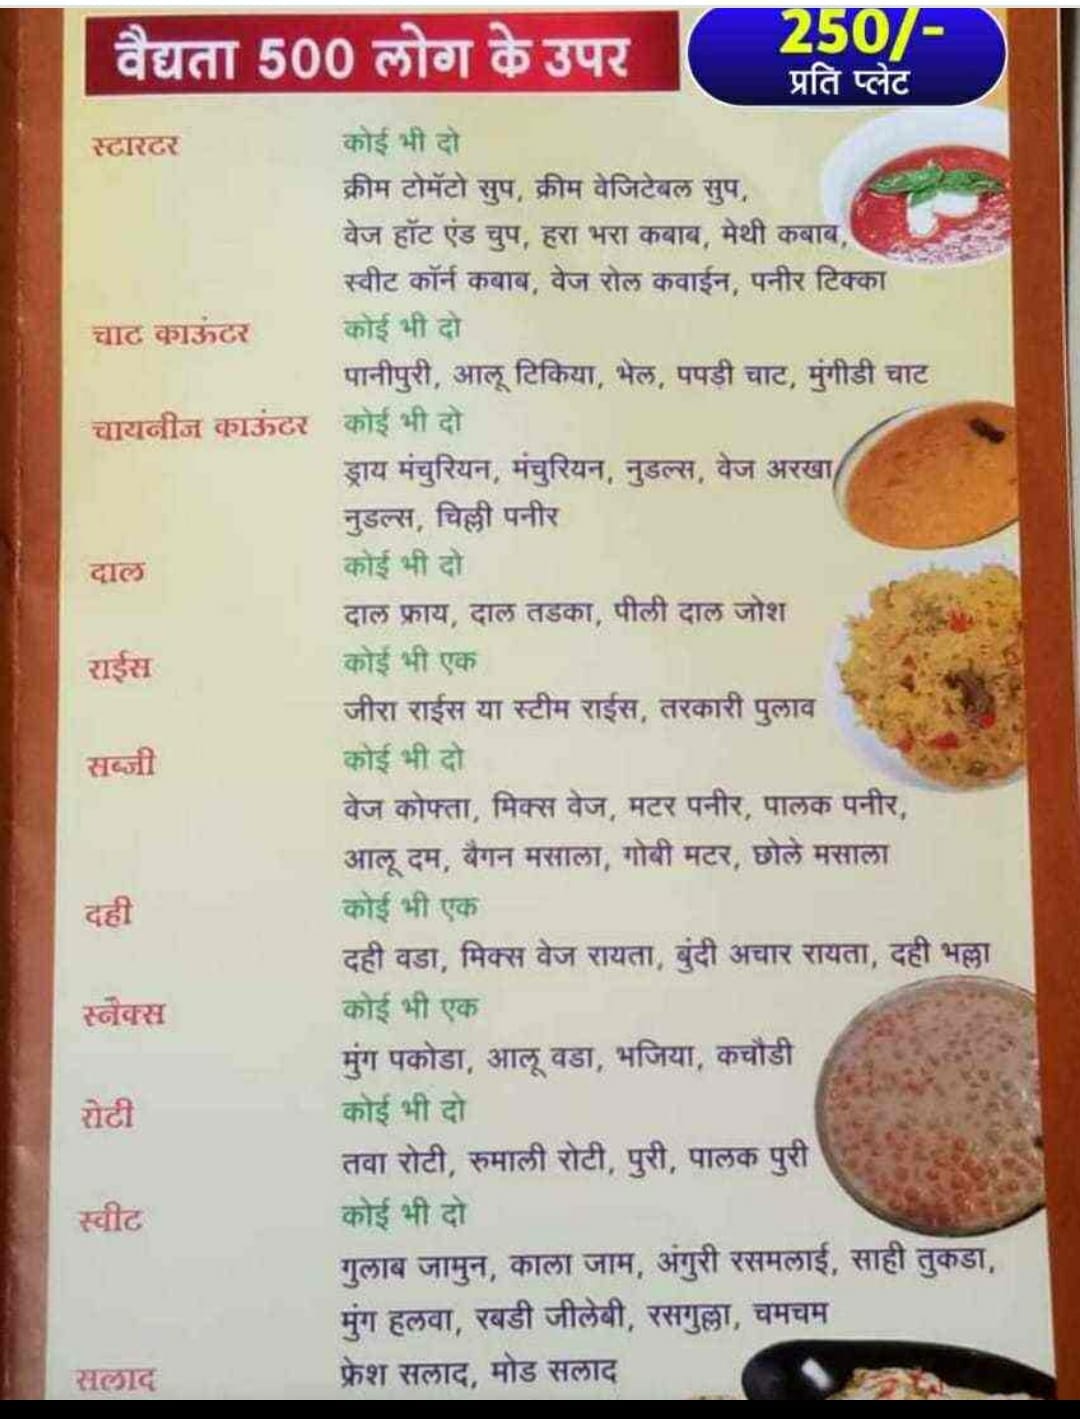 वैद्यता 500 लोग के उपर
250/-
प्रति प्लेट
स्टारटर कोई भी दो
क्रीम टोमॅटो सुप, क्रीम वेजिटेबल सुप,
वेज हॉट एंड चुप, हरा भरा कबाब, मेथी कबाब,
स्वीट कॉर्न कबाब, वेज रोल कवाईन, पनीर टिक्का
चाट काऊंटर कोई भी दो
पानीपुरी, आलू टिकिया, भेल, पपड़ी चाट, मुंगीडी चाट
चायनीज काऊंटर कोई भी दो
ड्राय मंचुरियन, मंचुरियन, नुडल्स, वेज अरखा
नुडल्स, चिल्ली पनीर
दाल कोई भी दो
दाल फ्राय, दाल तडका, पीली दाल जोश
राईस कोई भी एक
जीरा राईस या स्टीम राईस, तरकारी पुलाव
सब्जी कोई भी दो
वेज कोफ्ता, मिक्स वेज, मटर पनीर, पालक पनीर,
आलू दम, बैगन मसाला, गोबी मटर, छोले मसाला
दही कोई भी एक
दही वडा, मिक्स वेज रायता, बुंदी अचार रायता, दही भल्ला
स्नॅक्स कोई भी एक
मुंग पकोडा, आलू वडा, भजिया, कचौडी
रोटी कोई भी दो
तवा रोटी, रुमाली रोटी, पुरी, पालक पुरी
स्वीट कोई भी दो
गुलाब जामुन, काला जाम, अंगुरी रसमलाई, साही तुकडा,
मुंग हलवा, रबडी जीलेबी, रसगुल्ला, चमचम
सलाद फ्रेश सलाद, मोड सलाद